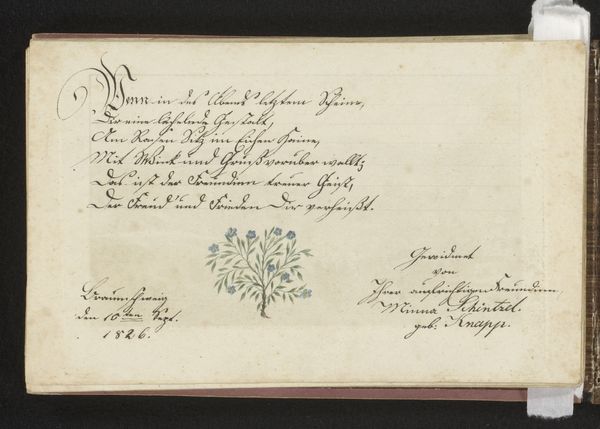 Wenn in des Abends letztem Scheine,
Dir eine lächelnde Gestalt,
Am Rasen Sitz im Eichen Haine,
Mit Wink und Gruß vorüber wallt;
Das ist der Freundinn treuer Geist,
Der Freud' und Frieden Dir verheißt.
Braunschweig
den 10ten Sept.
1826.
Gewidmet
von
Ihrer aufrichtigen Freundinn
Minna Schintzel.
geb: Knapp.